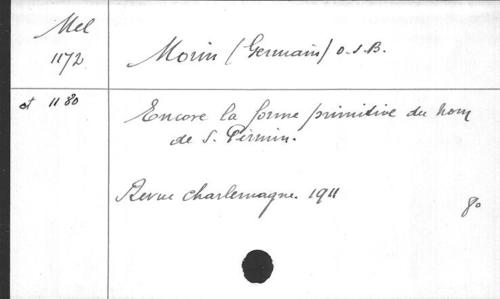 Mel
1172
Morin (Germain) O.S.B.
et 1180
Encore la forme primitive du nom
de S. Pirmin.
Revue Charlemagne. 1911
8o